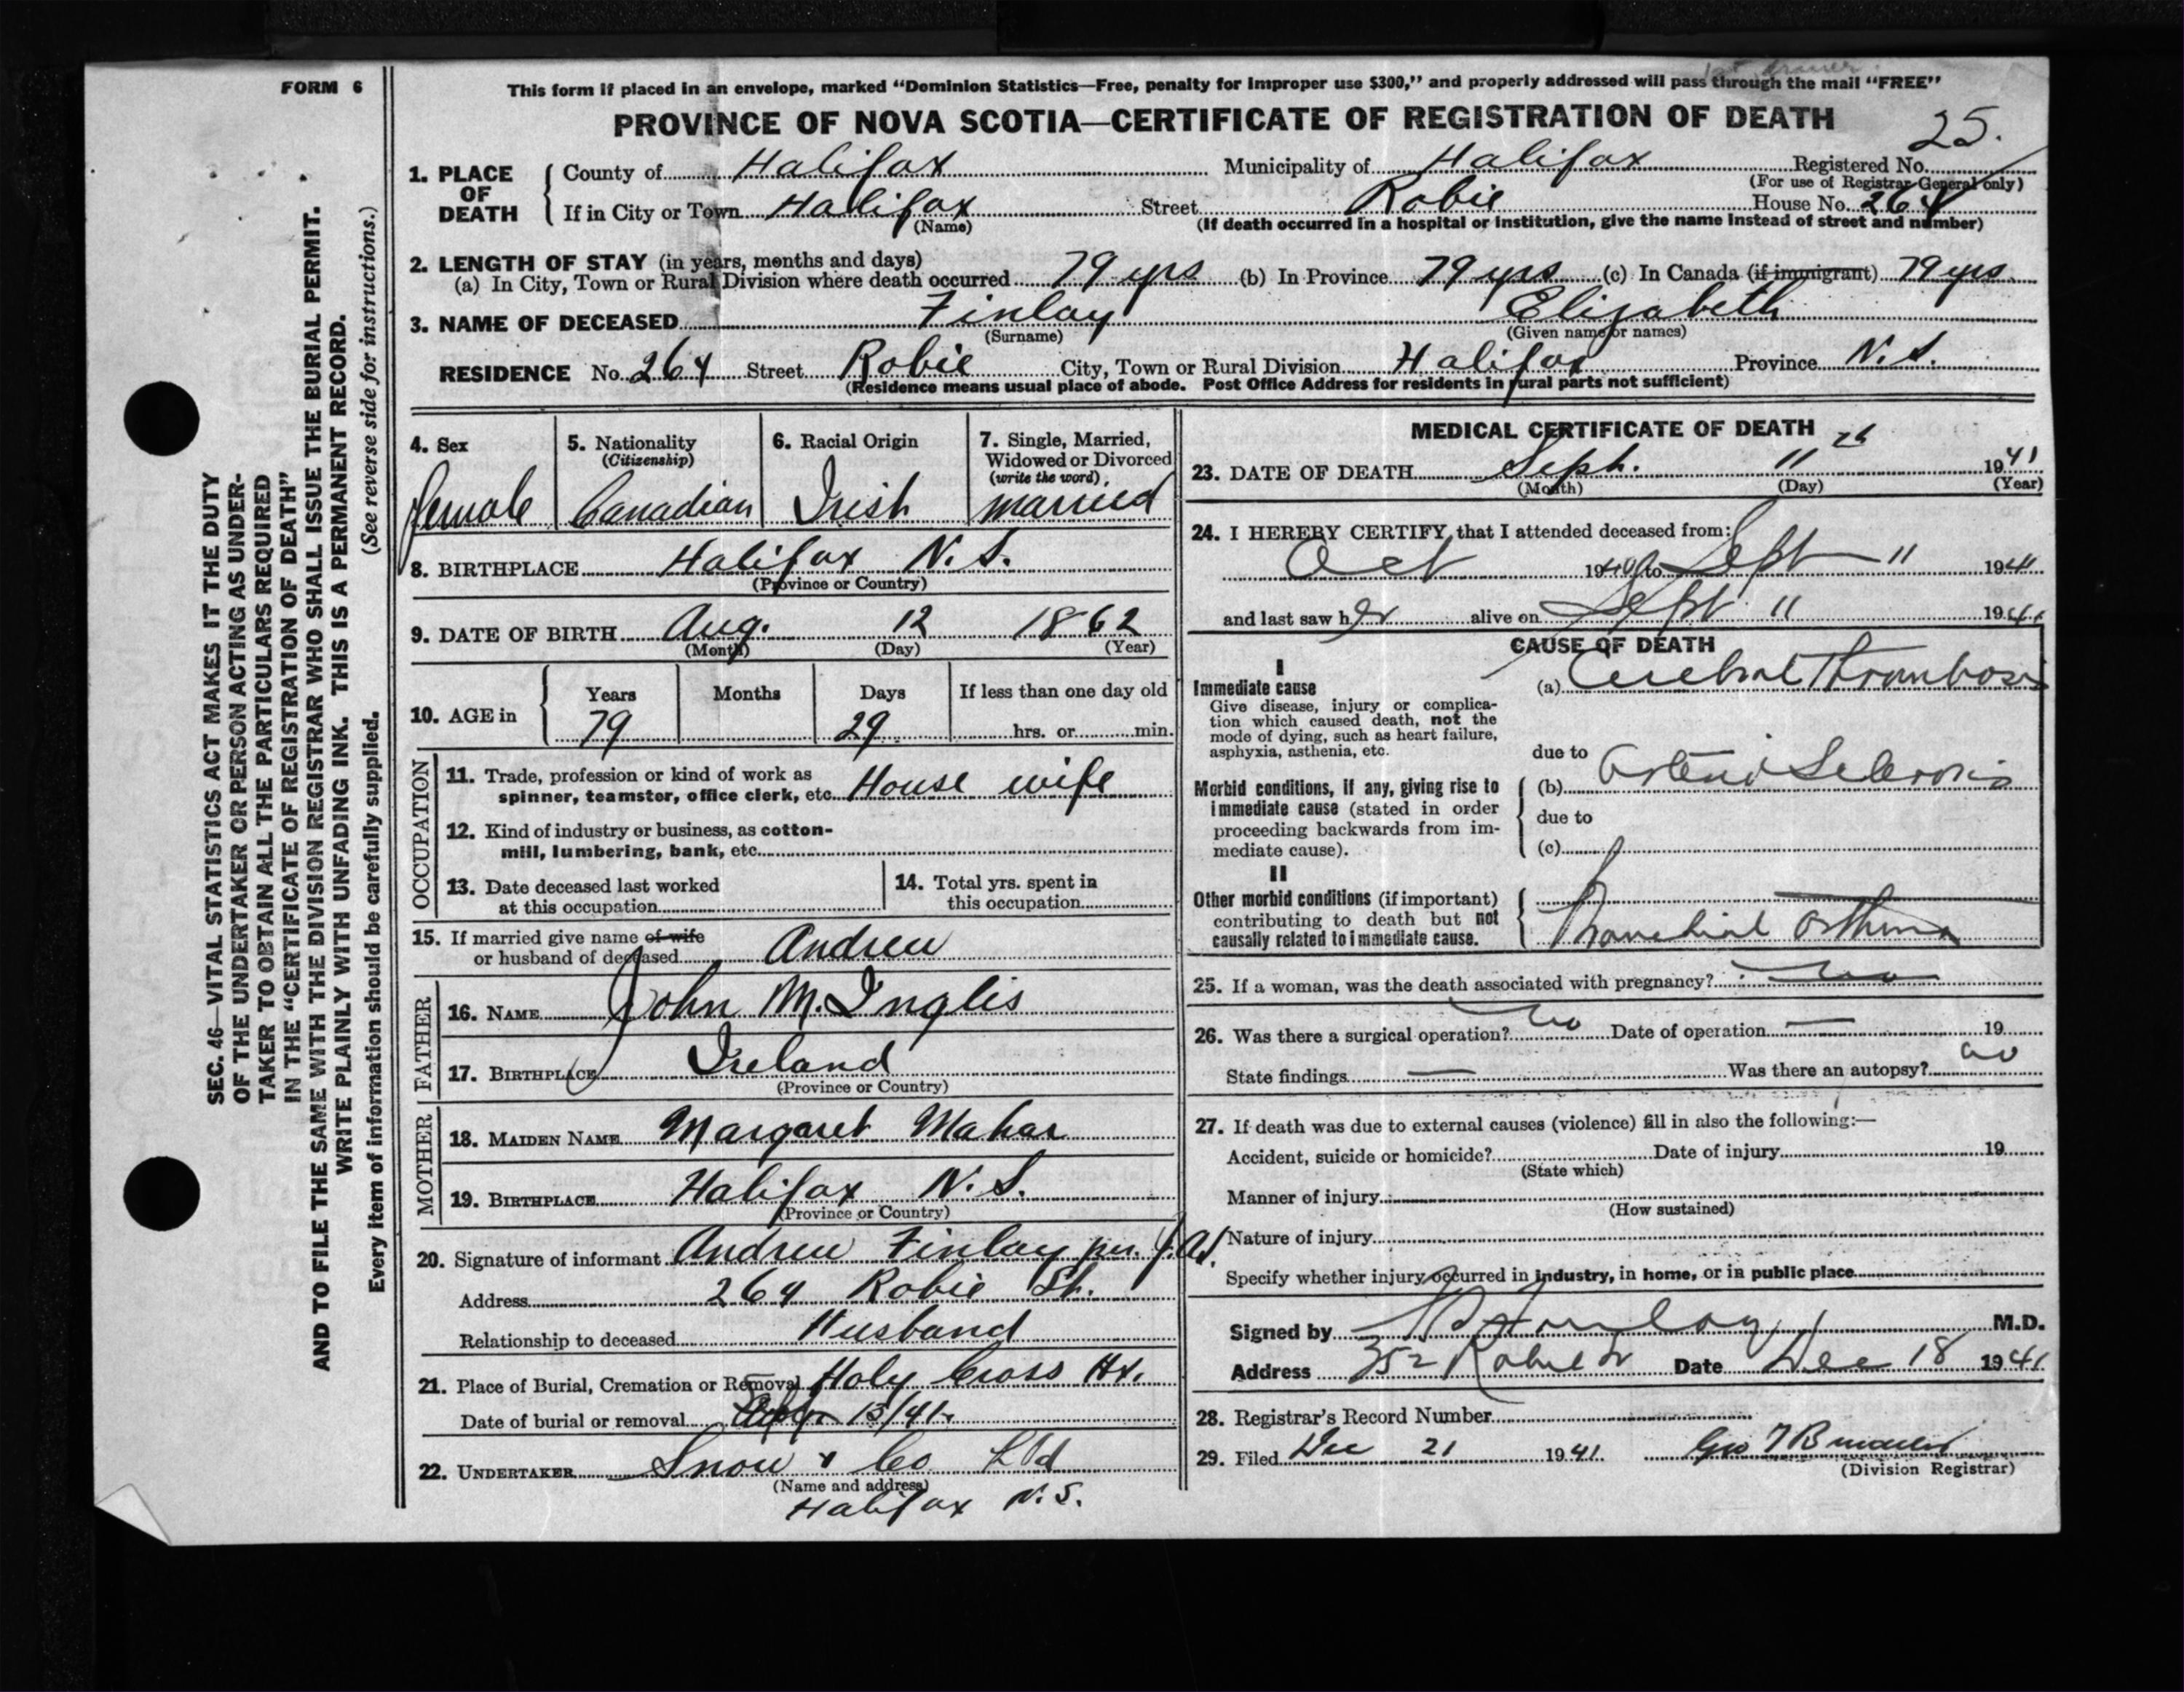 FORM 6
This form if placed in an envelope, marked "Dominion Statistics—Free, penalty for improper use $300," and properly addressed will pass through the mail "FREE"
PROVINCE OF NOVA SCOTIA—CERTIFICATE OF REGISTRATION OF DEATH
25.
1. PLACE OF DEATH
County of Halifax Municipality of Halifax Registered No.
(For use of Registrar General only)
If in City or Town Halifax Street Robie House No. 264
(Name) (If death occurred in a hospital or institution, give the name instead of street and number)
2. LENGTH OF STAY (in years, months and days)
(a) In City, Town or Rural Division where death occurred 79 yrs (b) In Province 79 yrs (c) In Canada (if immigrant) 79 yrs
3. NAME OF DECEASED Finlay Elizabeth
(Surname) (Given name or names)
RESIDENCE No. 264 Street Robie City, Town or Rural Division Halifax Province N.S.
(Residence means usual place of abode. Post Office Address for residents in rural parts not sufficient)
4. Sex
female
5. Nationality
(Citizenship)
Canadian
6. Racial Origin
Irish
7. Single, Married,
Widowed or Divorced
(write the word)
married
8. BIRTHPLACE Halifax N.S.
(Province or Country)
9. DATE OF BIRTH Aug. 12 1862
(Month) (Day) (Year)
10. AGE in
Years Months Days If less than one day old
79 29 hrs. or min.
OCCUPATION
11. Trade, profession or kind of work as
spinner, teamster, office clerk, etc. House wife
12. Kind of industry or business, as cotton-
mill, lumbering, bank, etc.
13. Date deceased last worked
at this occupation
14. Total yrs. spent in
this occupation
15. If married give name of wife
or husband of deceased Andrew
FATHER
16. NAME John M. Inglis
17. BIRTHPLACE Ireland
(Province or Country)
MOTHER
18. MAIDEN NAME Margaret Mahar
19. BIRTHPLACE Halifax N.S.
(Province or Country)
20. Signature of informant Andrew Finlay per.
Address 264 Robie St.
Relationship to deceased Husband
21. Place of Burial, Cremation or Removal Holy Cross Hx.
Date of burial or removal 13/41
22. UNDERTAKER Snow & Co Ltd
(Name and address)
Halifax N.S.
MEDICAL CERTIFICATE OF DEATH
23. DATE OF DEATH Sept. 11th 1941
(Month) (Day) (Year)
24. I HEREBY CERTIFY that I attended deceased from:
Oct 1940 to Sept 11 1941
and last saw her alive on Sept 11 1941
CAUSE OF DEATH
I
Immediate cause
Give disease, injury or complica-
tion which caused death, not the
mode of dying, such as heart failure,
asphyxia, asthenia, etc.
(a) Cerebral Thrombosis
due to
Morbid conditions, if any, giving rise to
immediate cause (stated in order
proceeding backwards from im-
mediate cause).
(b) Arterio Sclerosis
due to
(c)
II
Other morbid conditions (if important)
contributing to death but not
causally related to immediate cause.
Bronchial Asthma
25. If a woman, was the death associated with pregnancy? No
26. Was there a surgical operation? No Date of operation — 19
State findings — Was there an autopsy? no
27. If death was due to external causes (violence) fill in also the following:—
Accident, suicide or homicide? Date of injury 19
(State which)
Manner of injury
(How sustained)
Nature of injury
Specify whether injury occurred in industry, in home, or in public place
Signed by M.D.
Address 352 Robie St Date Dec 18 1941
28. Registrar's Record Number
29. Filed Dec 21 1941 Geo
(Division Registrar)
SEC. 46—VITAL STATISTICS ACT MAKES IT THE DUTY
OF THE UNDERTAKER OR PERSON ACTING AS UNDER-
TAKER TO OBTAIN ALL THE PARTICULARS REQUIRED
IN THE "CERTIFICATE OF REGISTRATION OF DEATH"
AND TO FILE THE SAME WITH THE DIVISION REGISTRAR WHO SHALL ISSUE THE BURIAL PERMIT.
WRITE PLAINLY WITH UNFADING INK. THIS IS A PERMANENT RECORD.
Every item of information should be carefully supplied. (See reverse side for instructions.)